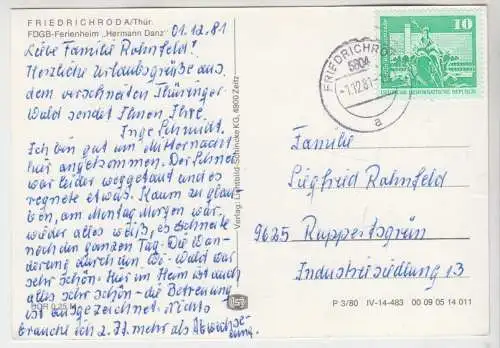 FRIEDRICHRODA/Thür.
FDGB-Ferienheim „Hermann Danz"
01.12.81
Liebe Familie Rahmfeld!
Herzliche Urlaubsgrüße aus
dem verschneiten Thüringer
Wald sendet Ihnen Ihre
Inge Schmidt.
Ich bin gut um Mitternacht
hier angekommen. Der Schnee
war leider weggetaut und es
regnete etwas. Kaum zu glau-
ben, am Montag Morgen war
wieder alles weiß, es schneite
noch den ganzen Tag. Die Wan-
derung durch den Wald war
sehr schön. Hier im Heim ist auch
alles sehr schön - die Betreuung
ist ausgezeichnet. Nichts
brauche ich z. Zt. mehr als Abwechse-
lung.
EVP 0,25 M
Verlag: Lichtbild-Schincke KG, 4900 Zeitz
FRIEDRICHRODA
5804
-1.12.81
a
10
DEUTSCHE DEMOKRATISCHE REPUBLIK
Familie
Siegfried Rahmfeld
9625 Ruppertsgrün
Industriesiedlung 13
P 3/80 IV-14-483 00 09 05 14 011